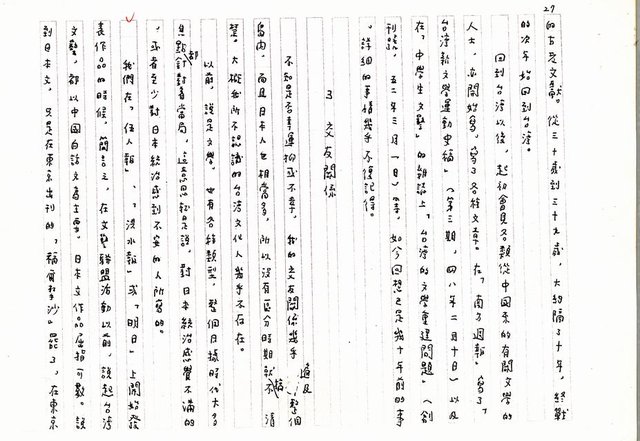 27
的古老文獻。從三十歲到三十九歲，大約隔了十年，終戰
的次年始回到台灣。
回到台灣以後，起初會見各類從中國來的有關文學的
人士，也開始寫，寫了各種文章。在「南方週報」寫了「
台灣新文學運動史稿」（第三期，四八年二月十日）以及
在「中學生文藝」的雜誌上，「台灣的文學重建問題」（創
刊號，五二年三月一日）等，如今回想已是幾十年前的事
，詳細的事情幾乎不復記得。
3 交友關係
不知是否幸運抑或不幸，我的交友關係幾乎遍及整個
島內，而且日本人也相當多，所以沒有區分時期就搞不清
楚。大概我所不認識的台灣文化人幾乎不存在。
以前，說是文學，也有各種類型，整個日據時代大多
都針對著當局，這意思就是說，對日本統治感覺不滿的
，或者至少對日本統治感到不安的人所寫的。
我們在「伍人報」、「洪水報」或「明日」上開始發
表作品的時候，簡言之，在文藝聯盟活動以前，說起台灣
文藝，都以中國白話文為主要，日本文作品屈指可數。說
到日本文，只是在東京出刊的，「福爾摩沙」罷了，在東京